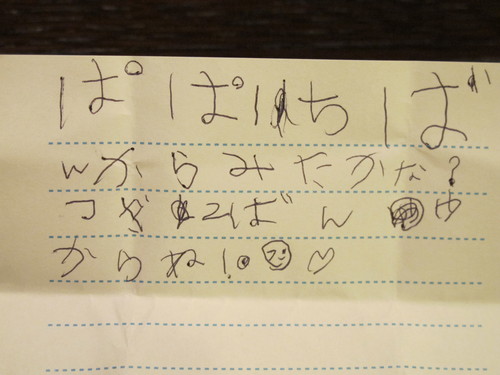 ぱぱいちば
んからみたかな?
つぎ にばんゆ
からね!